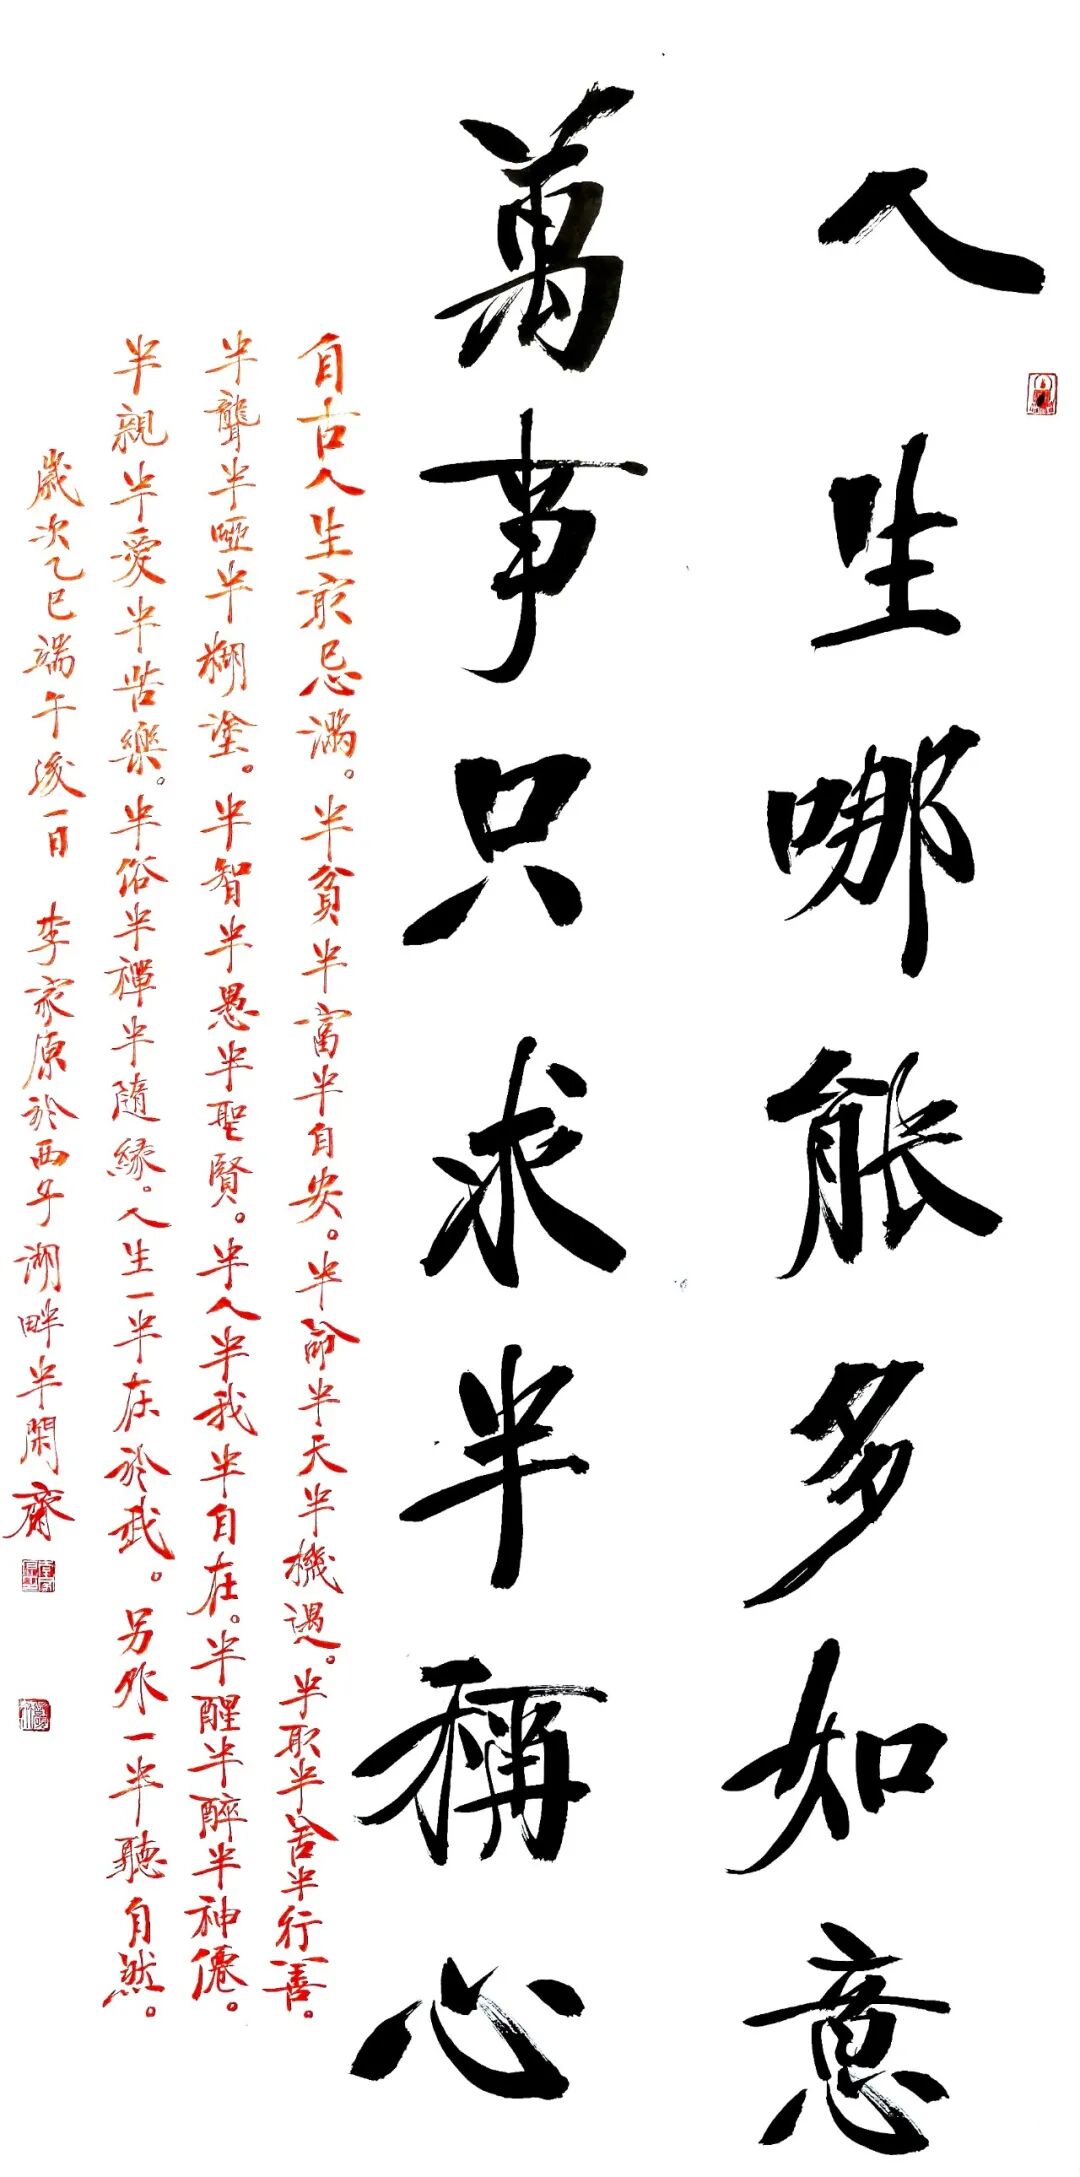 人生哪能多如意
萬事只求半稱心
自古人生最忌滿。半貧半富半自安。半命半天半機遇。半取半舍半行善。
半聾半啞半糊塗。半智半愚半聖賢。半人半我半自在。半醒半醉半神僊。
半親半愛半苦樂。半俗半禪半隨緣。人生一半在於我。另外一半聽自然。
歲次乙巳端午後一日 李家原於西子湖畔半閑齋